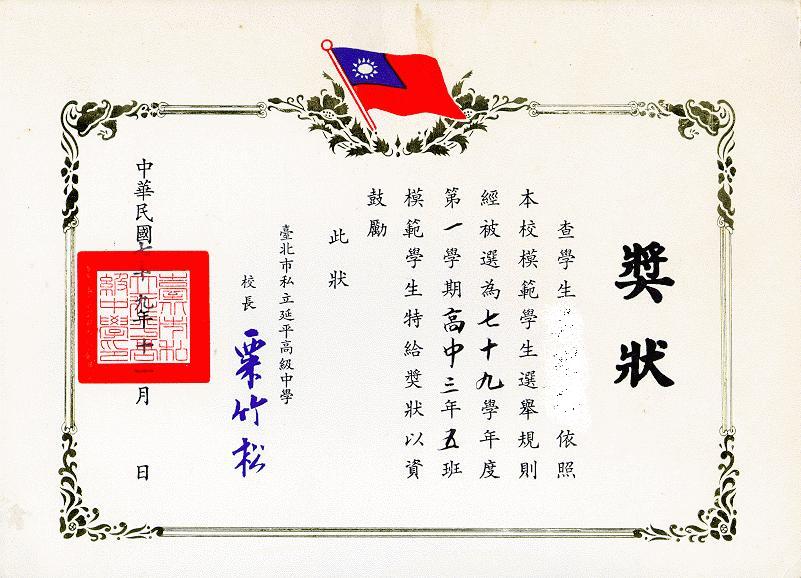 獎狀
查學生 依照
本校模範學生選舉規則
經被選為七十九學年度
第一學期高中三年五班
模範學生特給獎狀以資
鼓勵
此狀
臺北市私立延平高級中學
校長 栗竹松
中華民國七十九年十 月 日